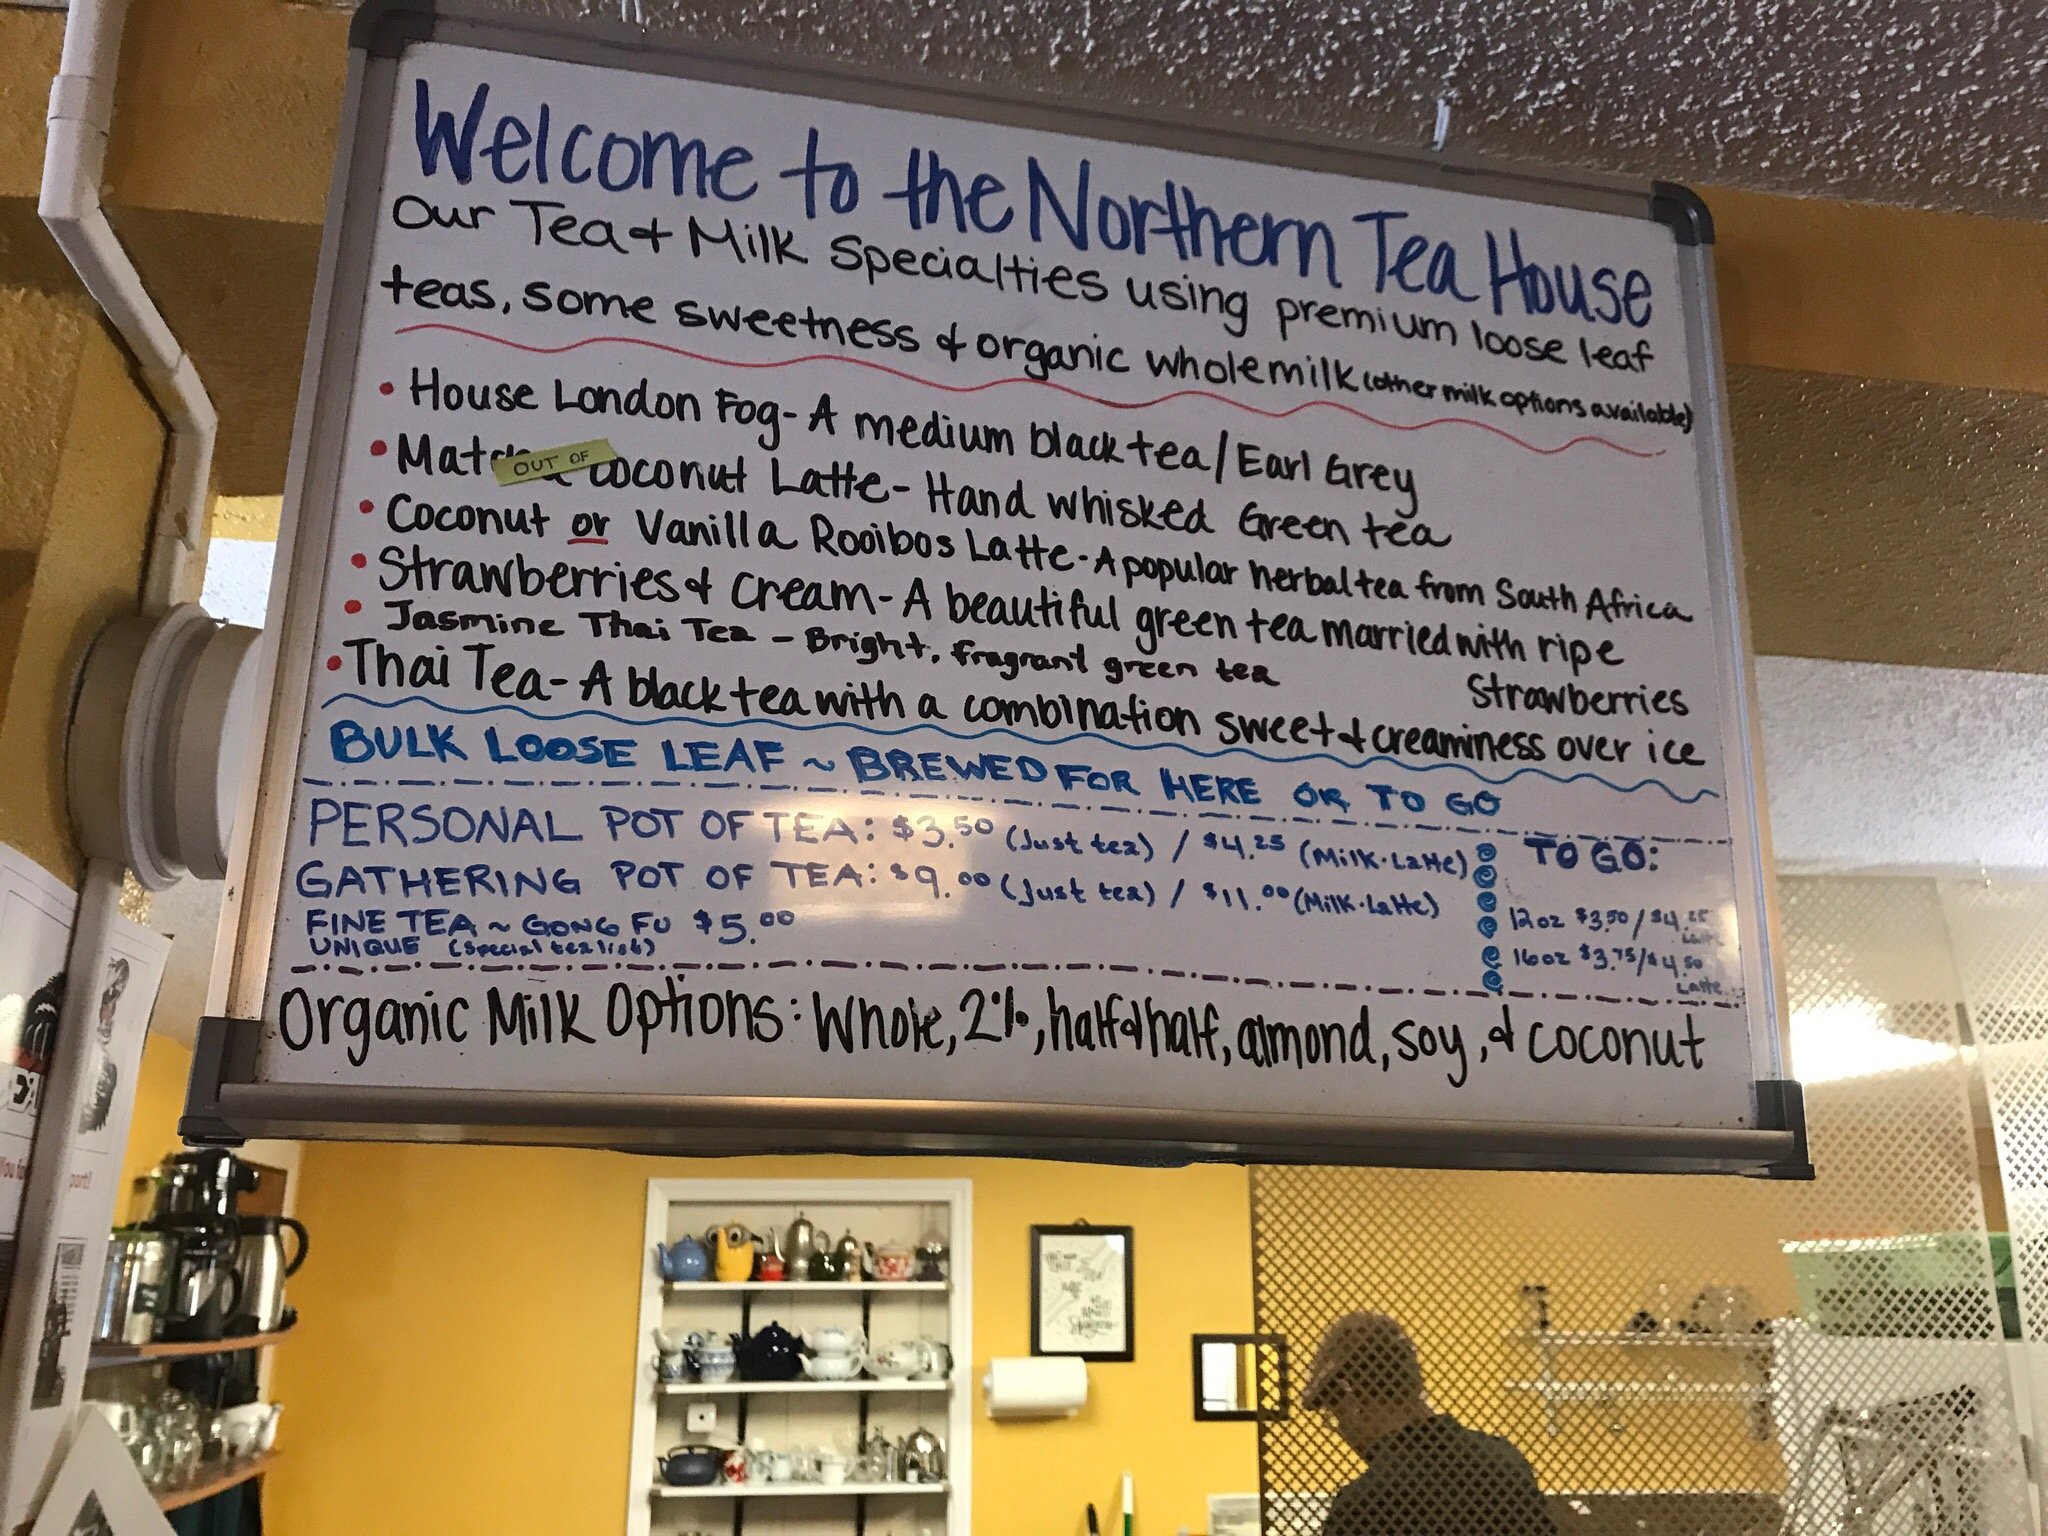 Welcome to the Northern Tea House
Our Tea & Milk Specialties using premium loose leaf
teas, some sweetness & organic whole milk (other milk options available)
• House London Fog - A medium black tea / Earl Grey
• Matcha Coconut Latte - Hand whisked Green tea
OUT OF
• Coconut or Vanilla Rooibos Latte - A popular herbal tea from South Africa
• Strawberries & Cream - A beautiful green tea married with ripe
Strawberries
• Jasmine Thai Tea - Bright, fragrant green tea
• Thai Tea - A black tea with a combination sweet & creaminess over ice
BULK LOOSE LEAF ~ BREWED FOR HERE OR TO GO
PERSONAL POT OF TEA: $3.50 (Just tea) / $4.25 (Milk·Latte)
GATHERING POT OF TEA: $9.00 (Just tea) / $11.00 (Milk·Latte)
FINE TEA ~ GONG FU $5.00
UNIQUE (Special tea list)
TO GO:
12oz $3.50 / $4.25
Latte
16oz $3.75 / $4.50
Latte
Organic Milk Options: Whole, 2%, half & half, almond, soy, & coconut